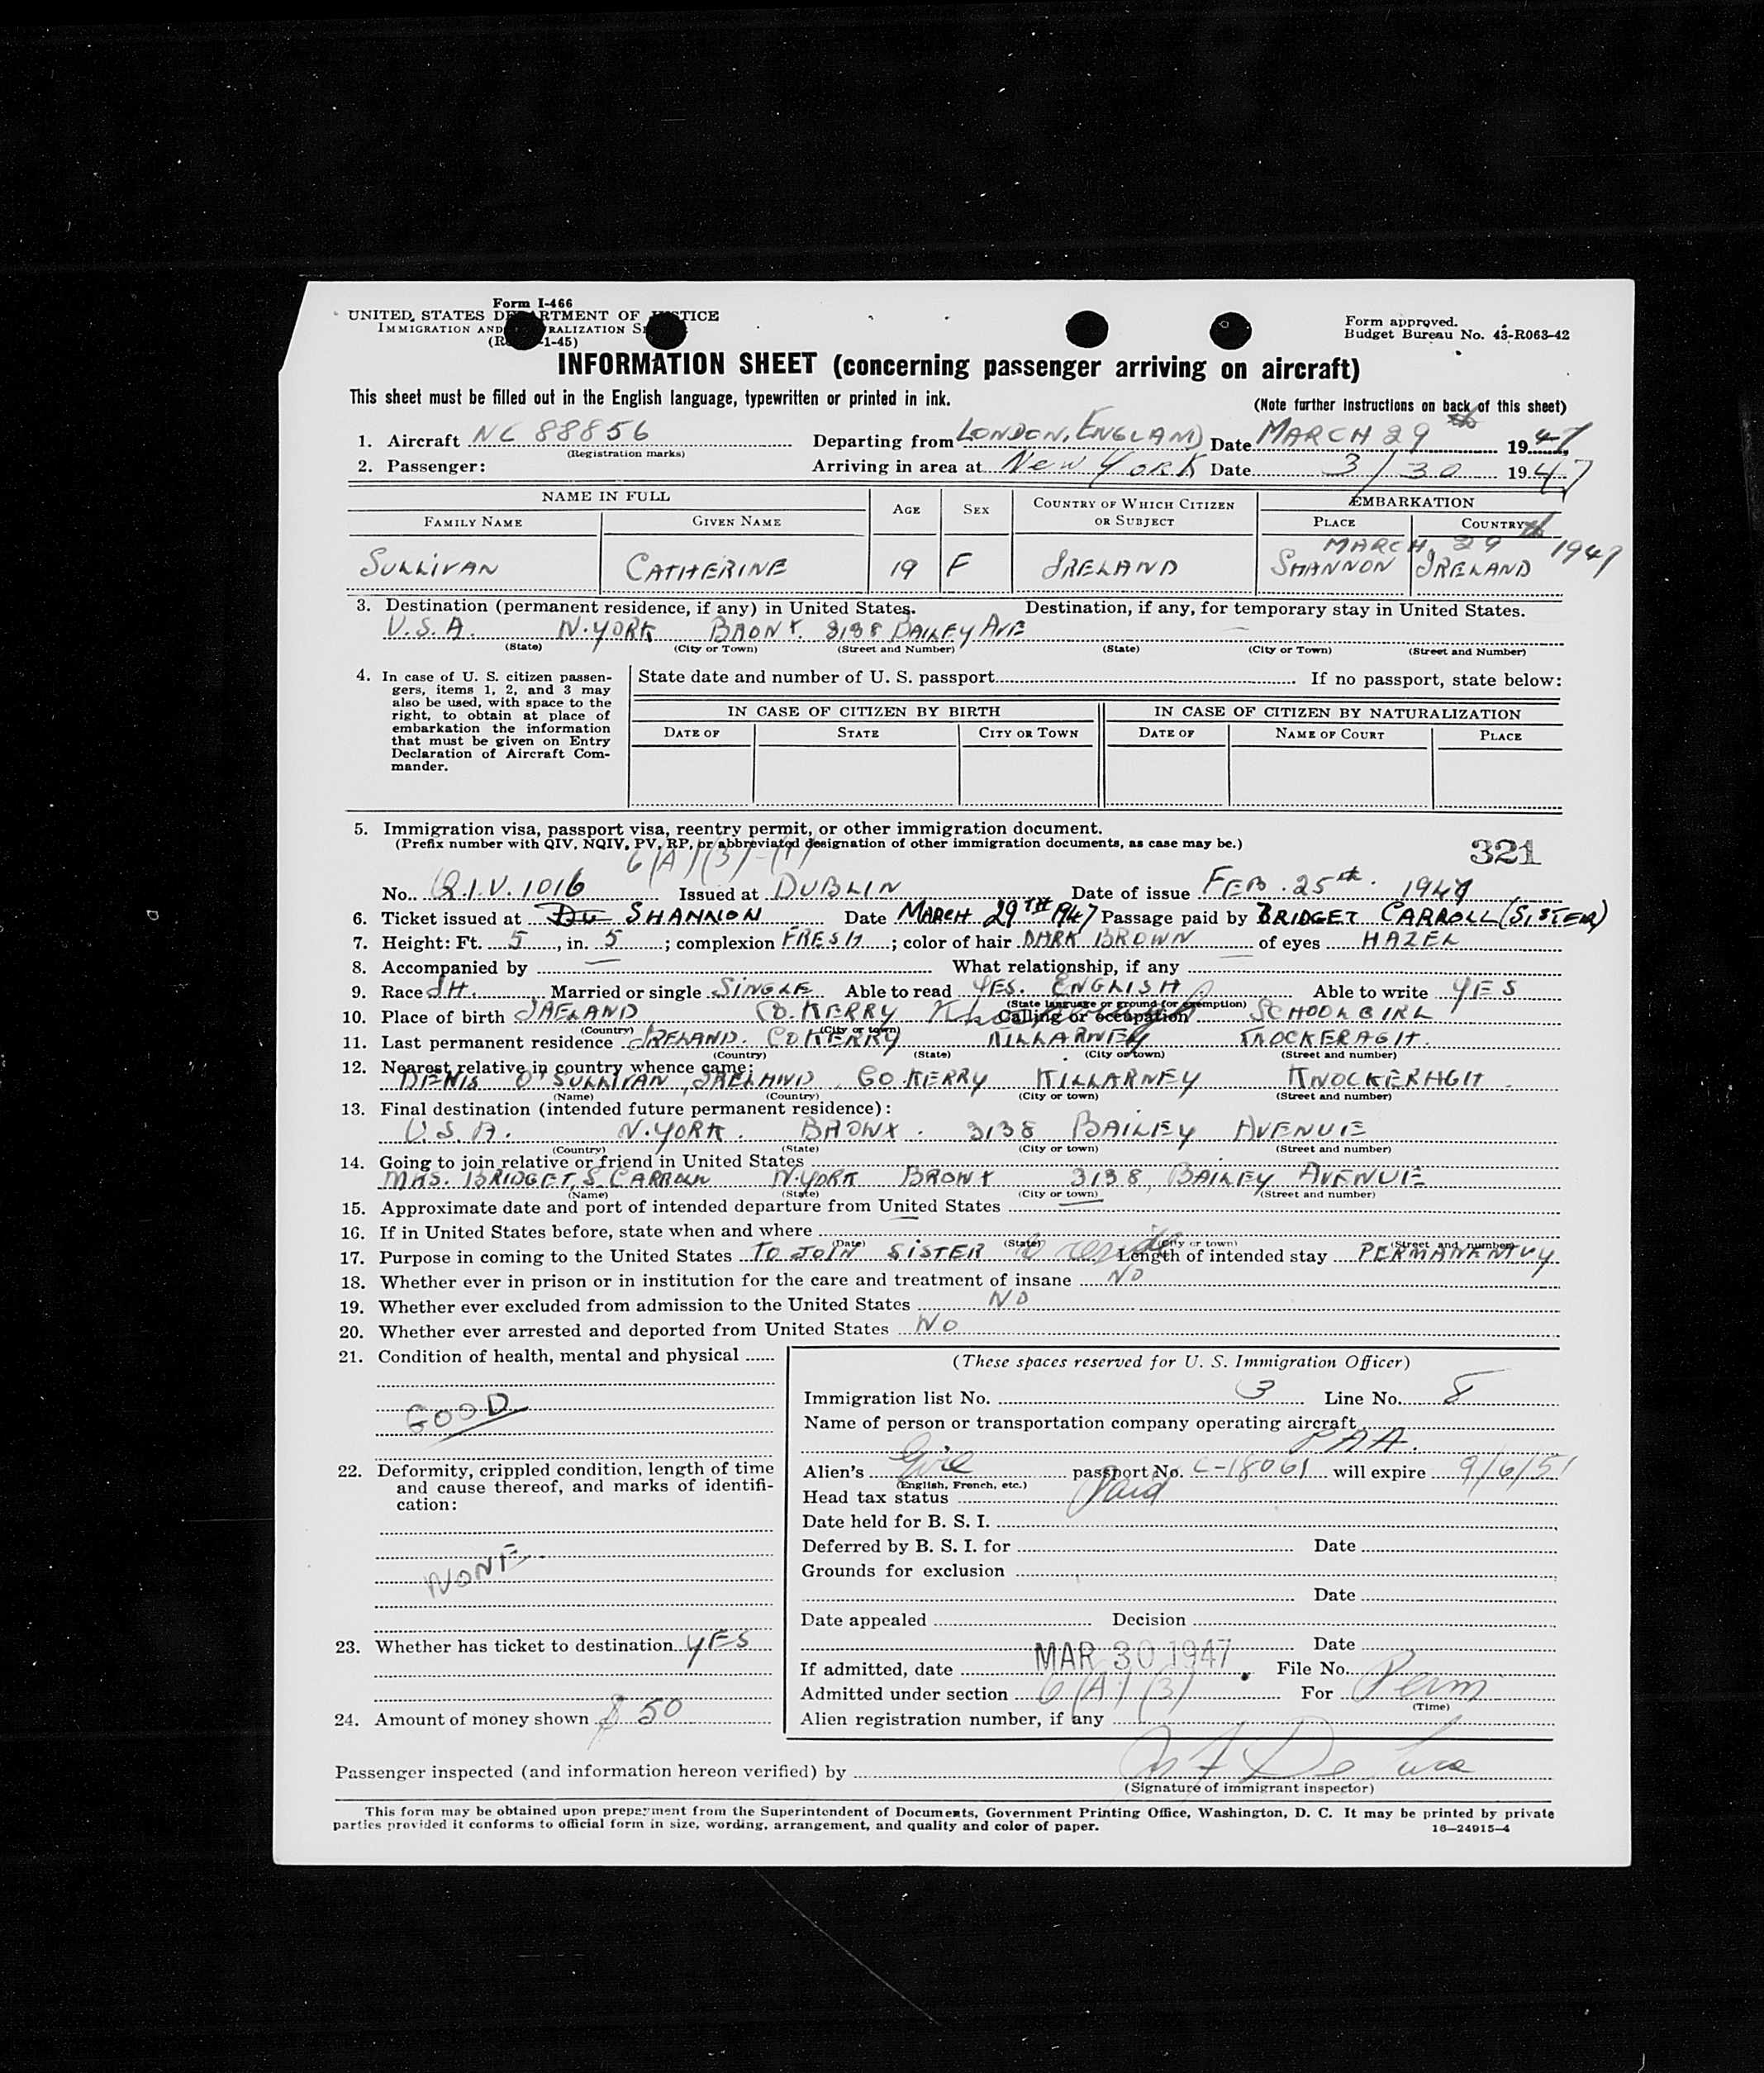 Form I-466
UNITED STATES DEPARTMENT OF JUSTICE
IMMIGRATION AND NATURALIZATION
(R -1-45)
Form approved.
Budget Bureau No. 43-R063-42
INFORMATION SHEET (concerning passenger arriving on aircraft)
This sheet must be filled out in the English language, typewritten or printed in ink.
(Note further instructions on back of this sheet)
1. Aircraft NC 88856 Departing from LONDON, ENGLAND Date MARCH 29th 1947
(Registration marks)
2. Passenger: Arriving in area at NEW YORK Date 3/30 1947
NAME IN FULL AGE SEX COUNTRY OF WHICH CITIZEN OR SUBJECT EMBARKATION
FAMILY NAME GIVEN NAME PLACE COUNTRY
MARCH 29th 1947
SULLIVAN CATHERINE 19 F IRELAND SHANNON IRELAND
3. Destination (permanent residence, if any) in United States. Destination, if any, for temporary stay in United States.
U.S.A. N.YORK BRONX. 3138 BAILEY AVE —
(State) (City or Town) (Street and Number) (State) (City or Town) (Street and Number)
4. In case of U. S. citizen passengers, items 1, 2, and 3 may also be used, with space to the right, to obtain at place of embarkation the information that must be given on Entry Declaration of Aircraft Commander.
State date and number of U. S. passport If no passport, state below:
IN CASE OF CITIZEN BY BIRTH IN CASE OF CITIZEN BY NATURALIZATION
DATE OF STATE CITY OR TOWN DATE OF NAME OF COURT PLACE
5. Immigration visa, passport visa, reentry permit, or other immigration document.
(Prefix number with QIV, NQIV, PV, RP, or abbreviated designation of other immigration documents, as case may be.)
321
6(A)(3)-(1)
No. Q.I.V. 1016 Issued at DUBLIN Date of issue FEB. 25th. 1947
6. Ticket issued at Du SHANNON Date MARCH 29TH 1947 Passage paid by BRIDGET CARROLL (SISTER)
7. Height: Ft. 5, in. 5; complexion FRESH; color of hair DARK BROWN of eyes HAZEL
8. Accompanied by — What relationship, if any —
9. Race IH. Married or single SINGLE Able to read YES. ENGLISH Able to write YES
(State language or ground for exemption)
10. Place of birth IRELAND CO. KERRY Calling or occupation SCHOOLGIRL
(Country) (City or town)
11. Last permanent residence IRELAND. CO KERRY KILLARNEY KNOCKERAGH.
(Country) (State) (City or town) (Street and number)
12. Nearest relative in country whence came:
DENIS O'SULLIVAN, IRELAND, CO KERRY KILLARNEY KNOCKERAGH.
(Name) (Country) (City or town) (Street and number)
13. Final destination (intended future permanent residence):
U.S.A. N.YORK. BRONX. 3138 BAILEY AVENUE
(Country) (State) (City or town) (Street and number)
14. Going to join relative or friend in United States
MRS. BRIDGET S. CARROLL N.YORK BRONX 3138, BAILEY AVENUE
(Name) (State) (City or town) (Street and number)
15. Approximate date and port of intended departure from United States —
16. If in United States before, state when and where —
(Date) (State) (City or town) (Street and number)
17. Purpose in coming to the United States TO JOIN SISTER to reside Length of intended stay PERMANENTLY
18. Whether ever in prison or in institution for the care and treatment of insane NO
19. Whether ever excluded from admission to the United States NO
20. Whether ever arrested and deported from United States NO
21. Condition of health, mental and physical
GOOD
22. Deformity, crippled condition, length of time and cause thereof, and marks of identification:
NONE
23. Whether has ticket to destination YES
24. Amount of money shown $ 50
(These spaces reserved for U. S. Immigration Officer)
Immigration list No. 3 Line No. 8
Name of person or transportation company operating aircraft
PAA.
Alien's Eire passport No. C-18061 will expire 9/6/51
(English, French, etc.)
Head tax status Paid
Date held for B. S. I.
Deferred by B. S. I. for Date
Grounds for exclusion
Date
Date appealed Decision
Date
If admitted, date MAR 30 1947 File No.
Admitted under section 6(A)(3) For Perm
(Time)
Alien registration number, if any
Passenger inspected (and information hereon verified) by
(Signature of immigrant inspector)
This form may be obtained upon prepayment from the Superintendent of Documents, Government Printing Office, Washington, D. C. It may be printed by private
parties provided it conforms to official form in size, wording, arrangement, and quality and color of paper.
16—24915-4